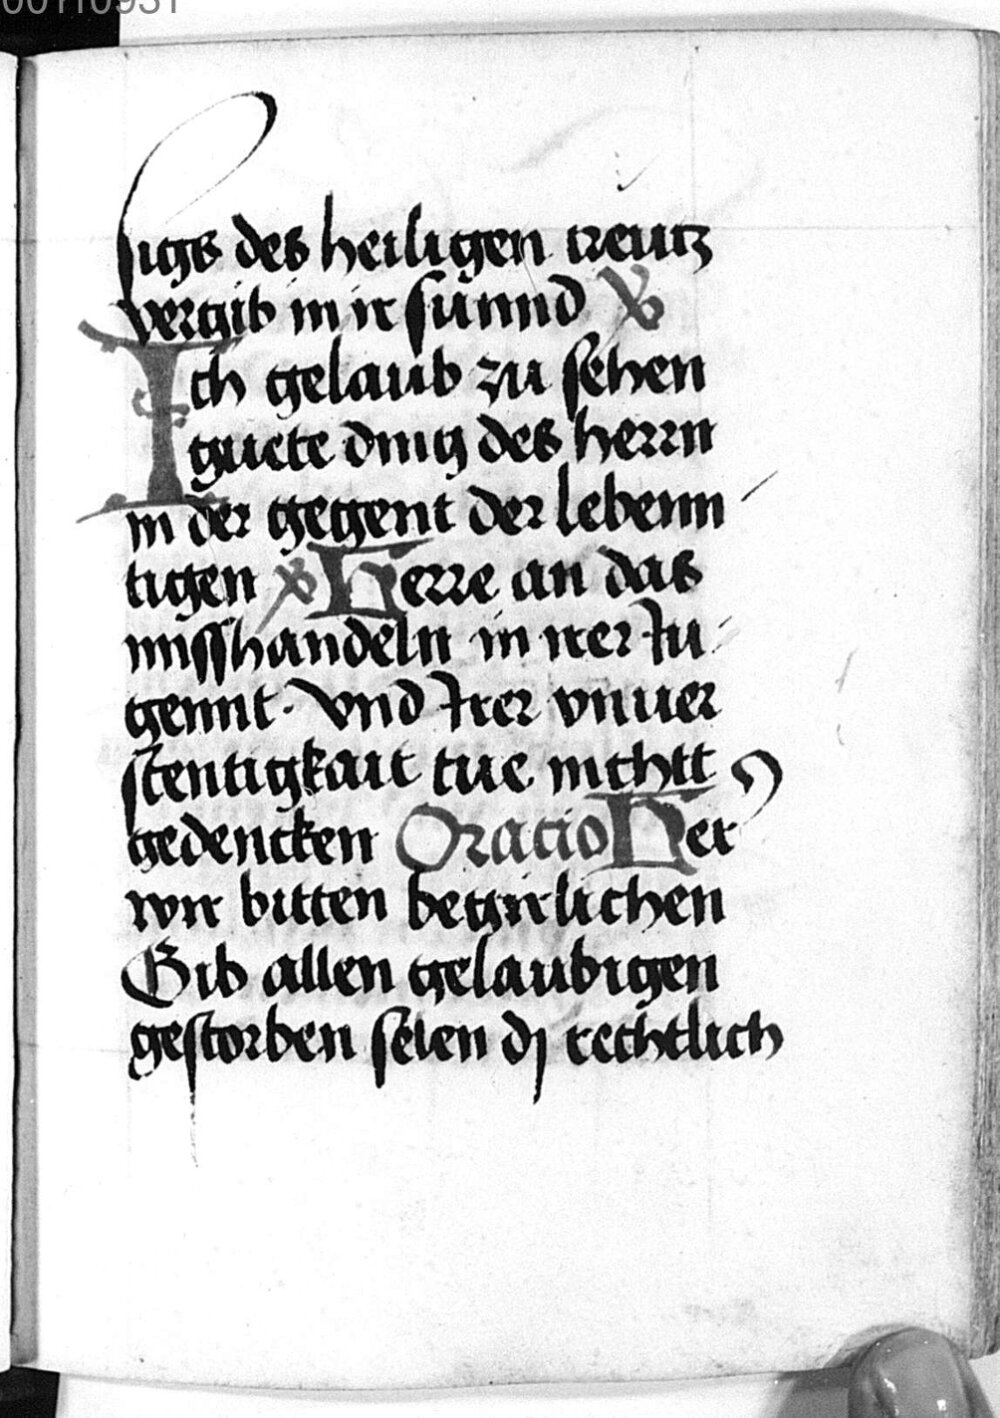 sigs des heiligen creutz
vergib im ir sünnd V
Ich gelaub zu sehen
guete ding des herrn
in der gegent der lebenn
tigen V Herre an das
misshandeln in irer Ju
gennt. vnd Jrer vnuer
stentigkait tue nichtt
gedencken Oracio Her
wir bitten begirlichen
Gib allen gelaubigen
gestorben selen dj rechtlich